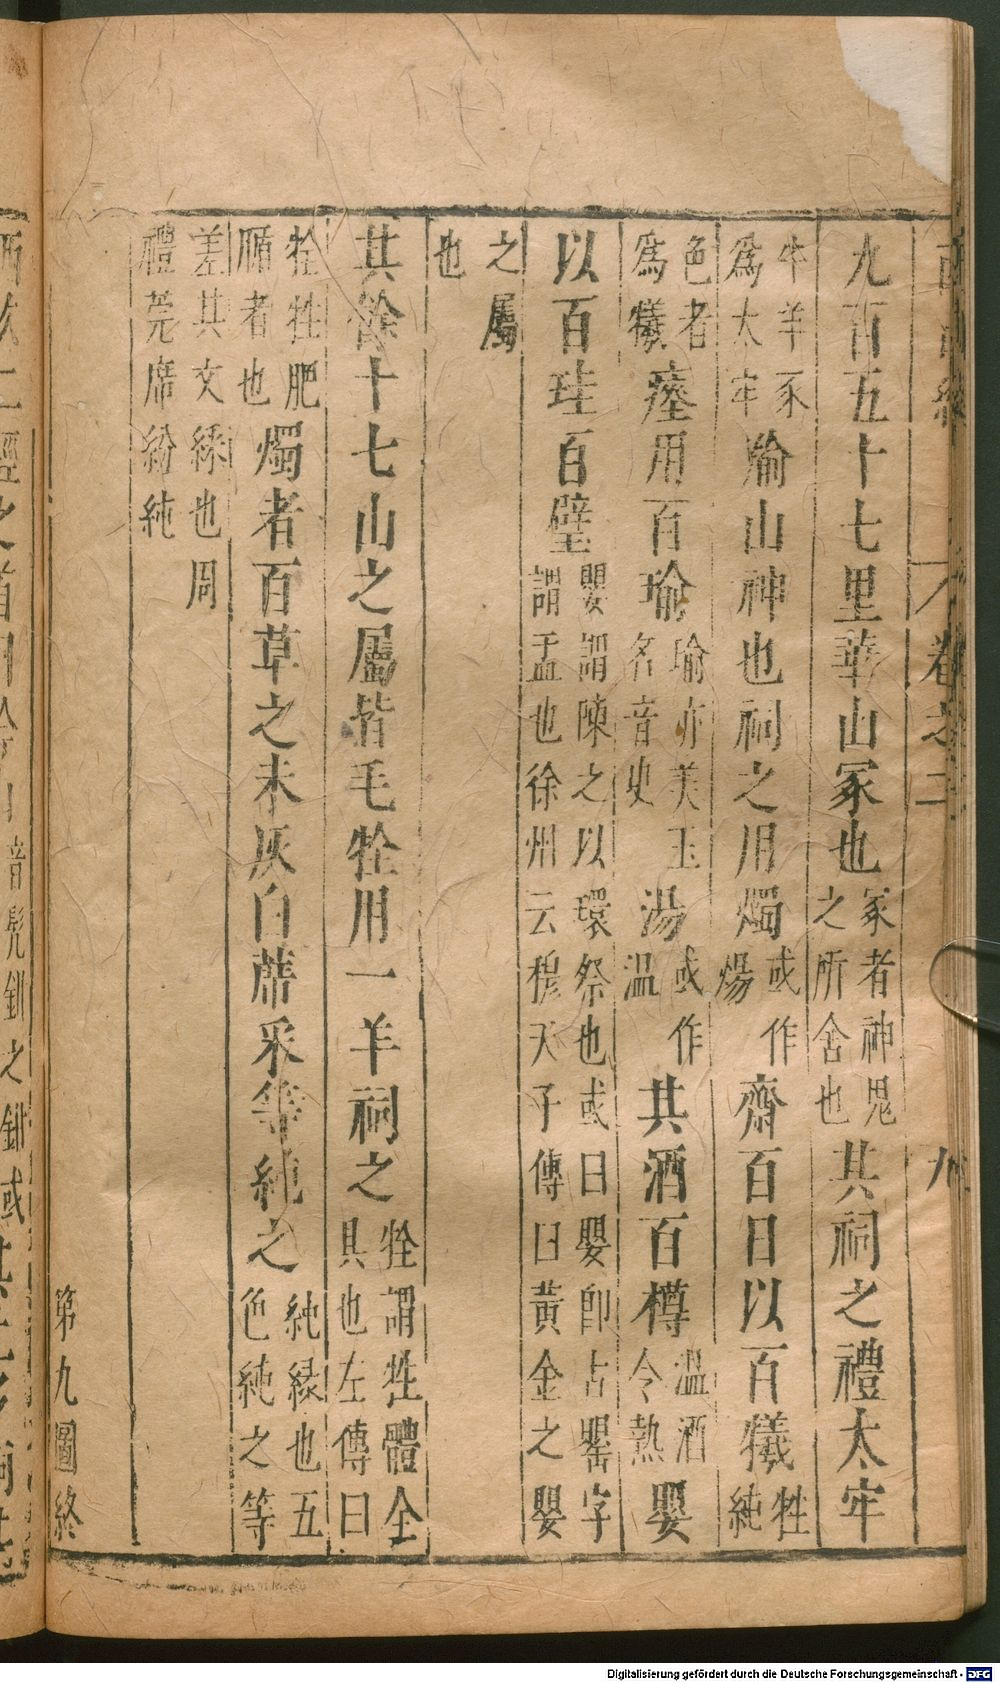 卷之二 九
九百五十七里華山冢也冢者神鬼之所舍也其祠之禮太牢
牛羊豕爲太牢羭山神也祠之用燭或作煬齋百日以百犧牲純
色者爲犧瘞用百瑜瑜亦美玉名音臾湯或作温其酒百樽温酒令熱嬰
以百珪百璧嬰謂陳之以環祭也或曰嬰卽古罌字謂盂也徐州云穆天子傳曰黃金之嬰
之屬也
其餘十七山之屬皆毛牷用一羊祠之牷謂牲體全具也左傳曰
牷牲肥腯者也燭者百草之未灰白蓆采等純之純緣也五色純之等
差其文綵也周禮莞席紛純
第九圖終
音髠釧之釧或
Digitalisierung gefördert durch die Deutsche Forschungsgemeinschaft - DFG